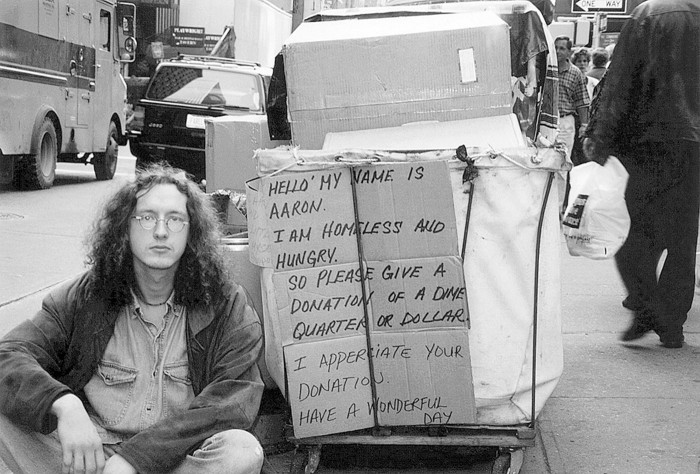 ONE WAY
PLAYWRIGHT
HELLO' MY NAME IS
AARON.
I AM HOMELESS AND
HUNGRY.
SO PLEASE GIVE A
DONATION OF A DIME
QUARTER OR DOLLAR.
I APPERCIATE YOUR
DONATION.
HAVE A WONDERFUL
DAY